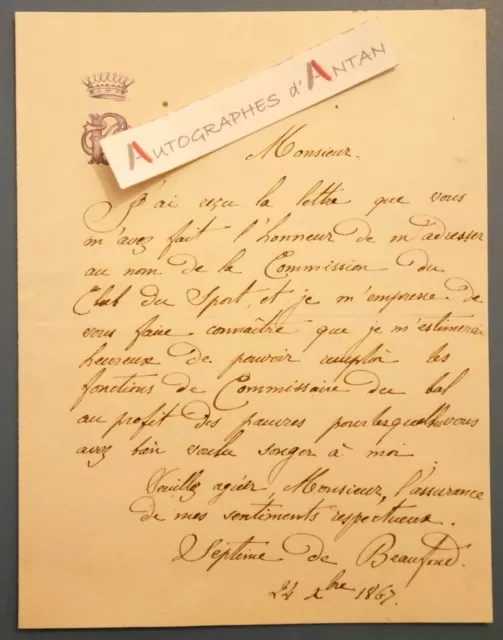 AUTOGRAPHES d'ANTAN
Monsieur.
J'ai reçu la lettre que vous
m'avez fait l'honneur de m'adresser
au nom de la Commission du
Club du Sport, et je m'empresse de
vous faire connaître que je m'estimerai
heureux de pouvoir remplir les
fonctions de Commissaire du bal
au profit des pauvres pour lesquelles vous
avez bien voulu songer à moi
Veuillez agréer, Monsieur, l'assurance
de mes sentiments respectueux.
Septime de Beaufond.
24 xbre 1867.